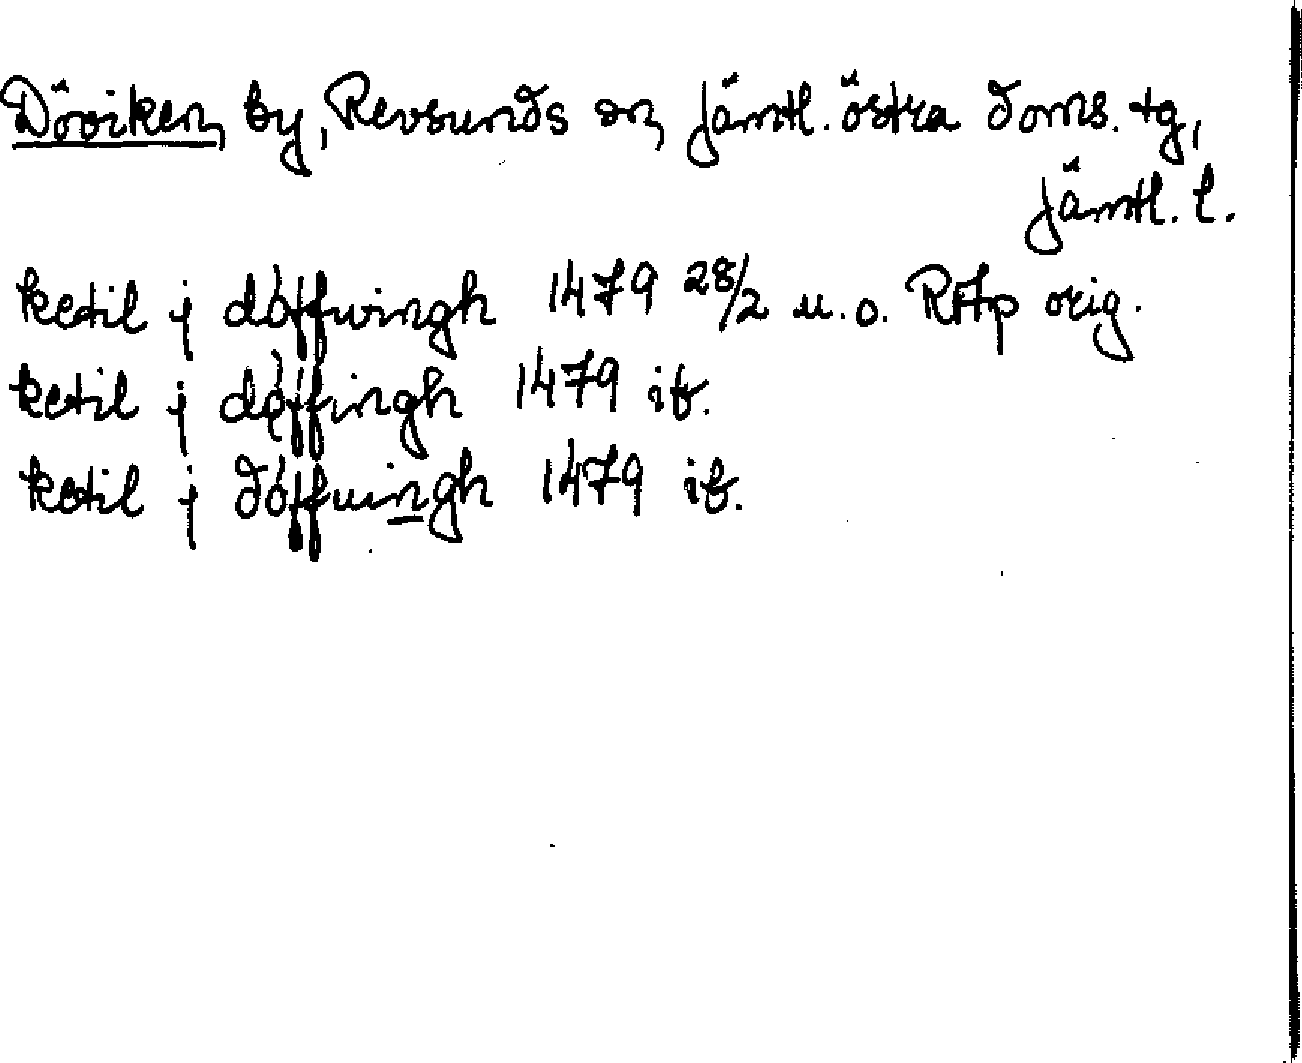 Döviken, by, Revsunds sn, Jämtl. östra doms. tg,
Jämtl. l.
ketil j dóffwingh 1479 28/2 u.o. RAp orig.
ketil j døffingh 1479 ib.
ketil j dóffuingh 1479 ib.